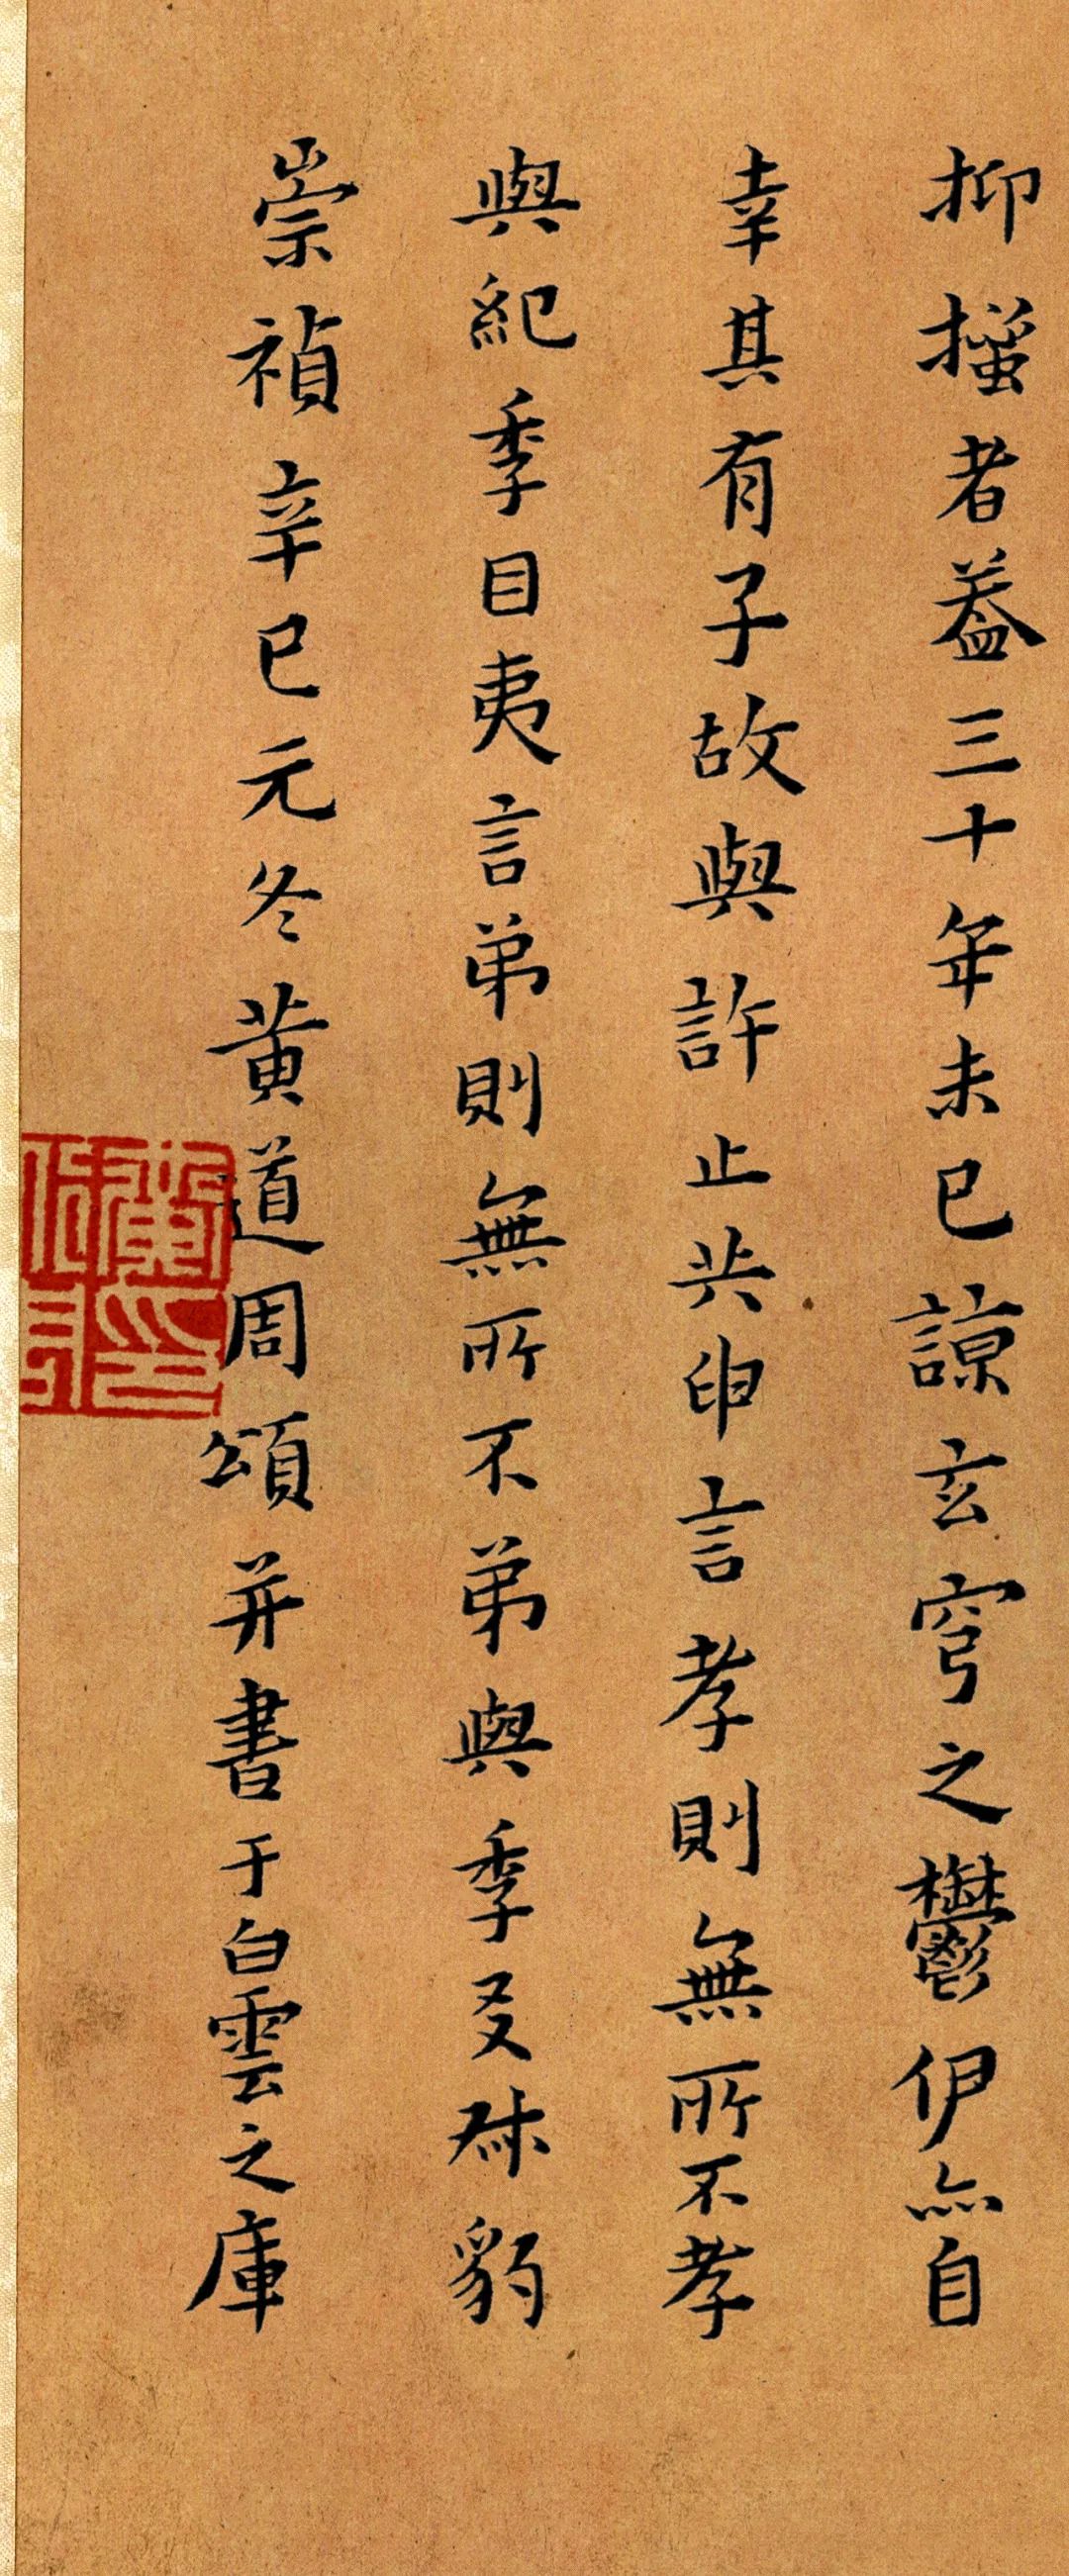 抑搔者葢三十年未已諒玄穹之鬱伊亦自
幸其有子故與許止共申言孝則無所不孝
與紀季目夷言弟則無所不弟與季友叔豹
崇禎辛巳元冬黃道周頌并書于白雲之庫